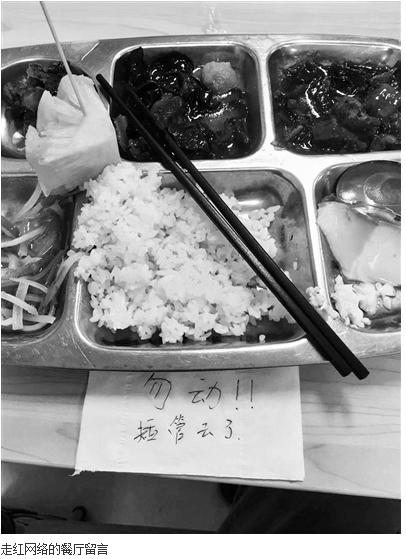 勿动!!
插管去了.
走红网络的餐厅留言